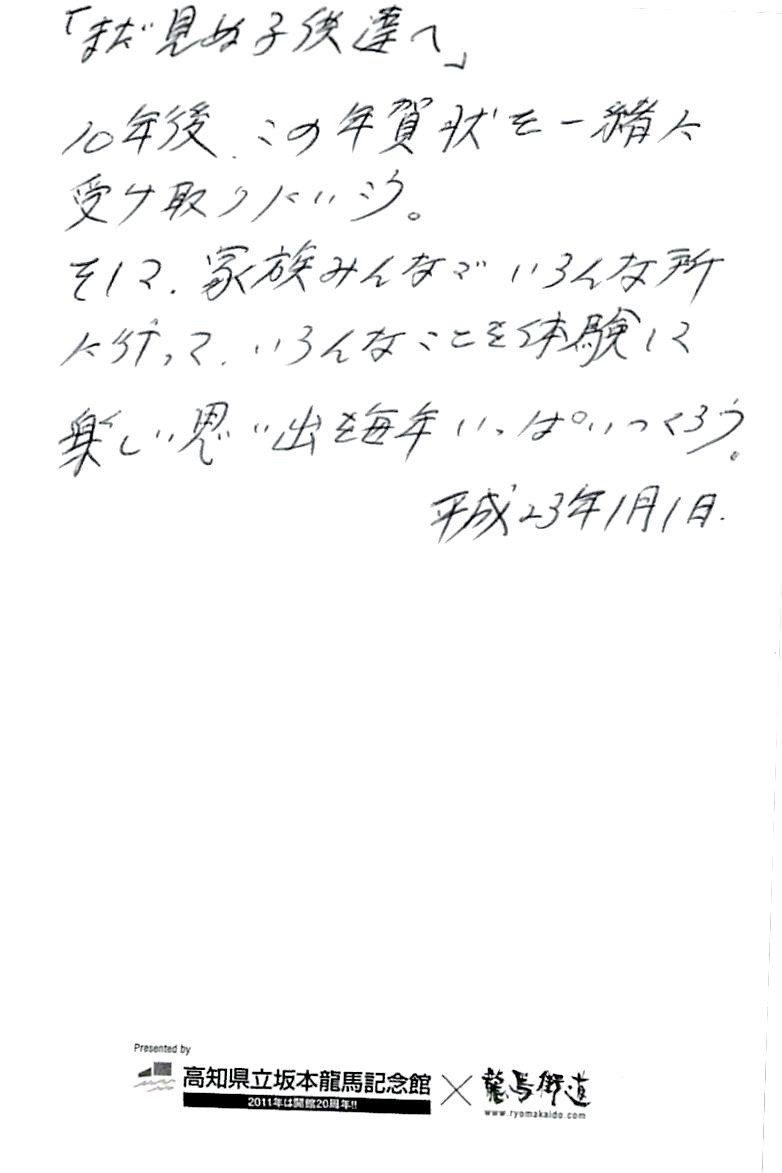 「まだ見ぬ子供達へ」
10年後、この年賀状を一緒に
受け取りたいいう。
そして、家族みんなでいろんな所
に行って、いろんなことを体験して
楽しい思い出を毎年いっぱいつくろう。
平成23年1月1日.
Presented by
高知県立坂本龍馬記念館
2011年は開館20周年!!
×
龍馬街道
www.ryomakaido.com